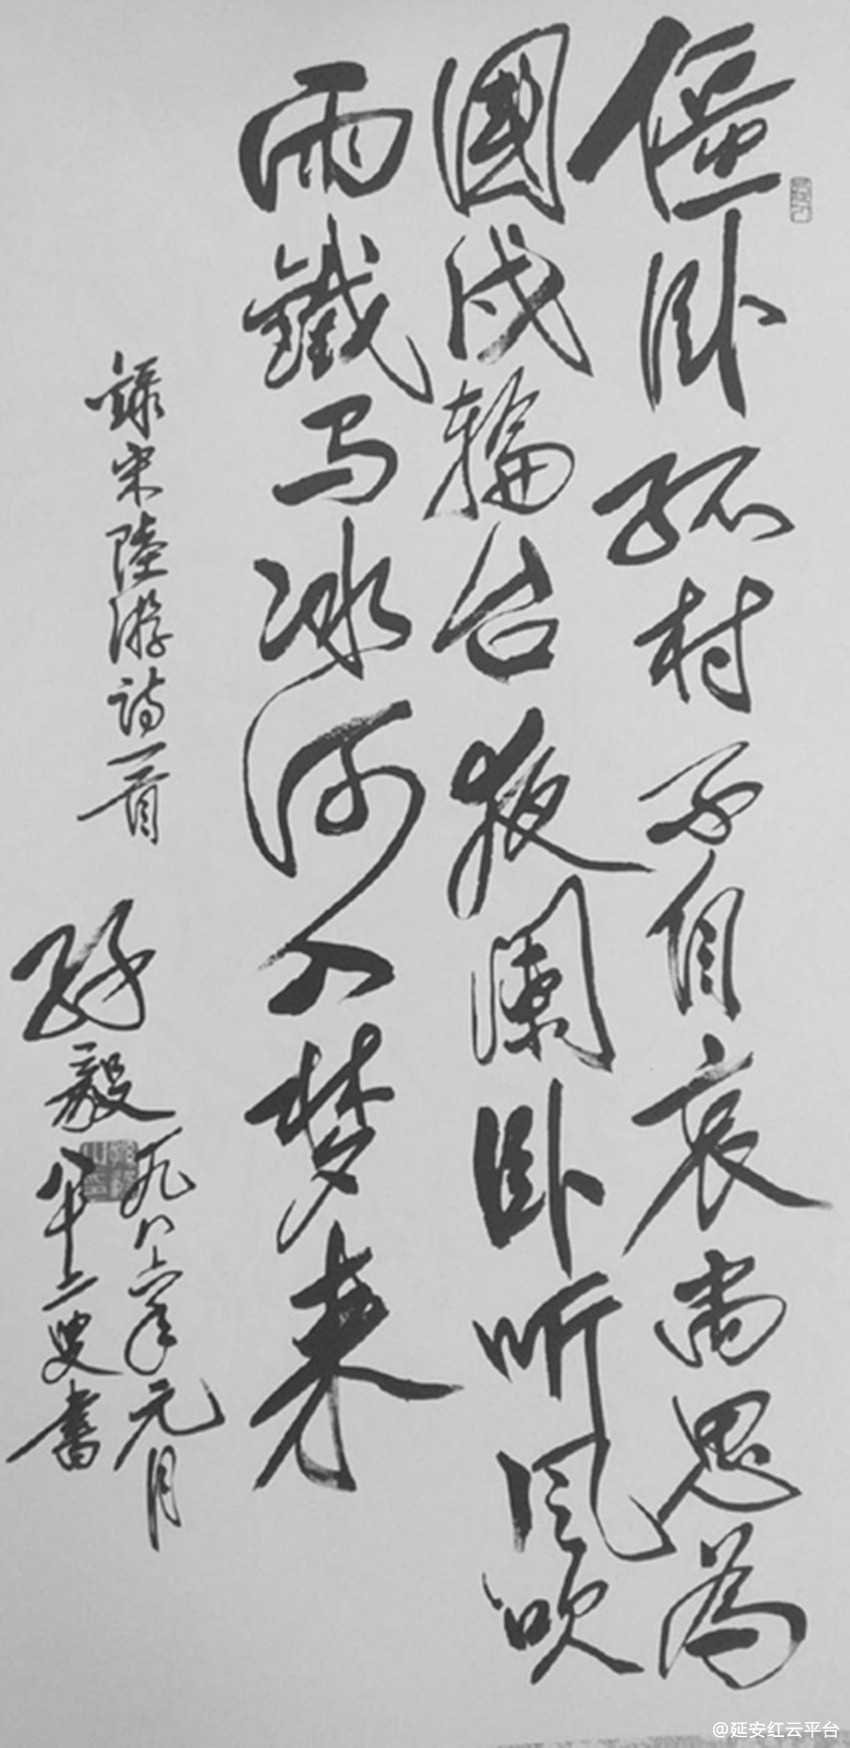 僵卧孤村不自哀尚思為
國戍輪台夜闌卧听风吹
雨鐵马冰河入梦来
錄宋陸游诗一首
孙毅
一九八六年元月
八十二叟書
@延安红云平台